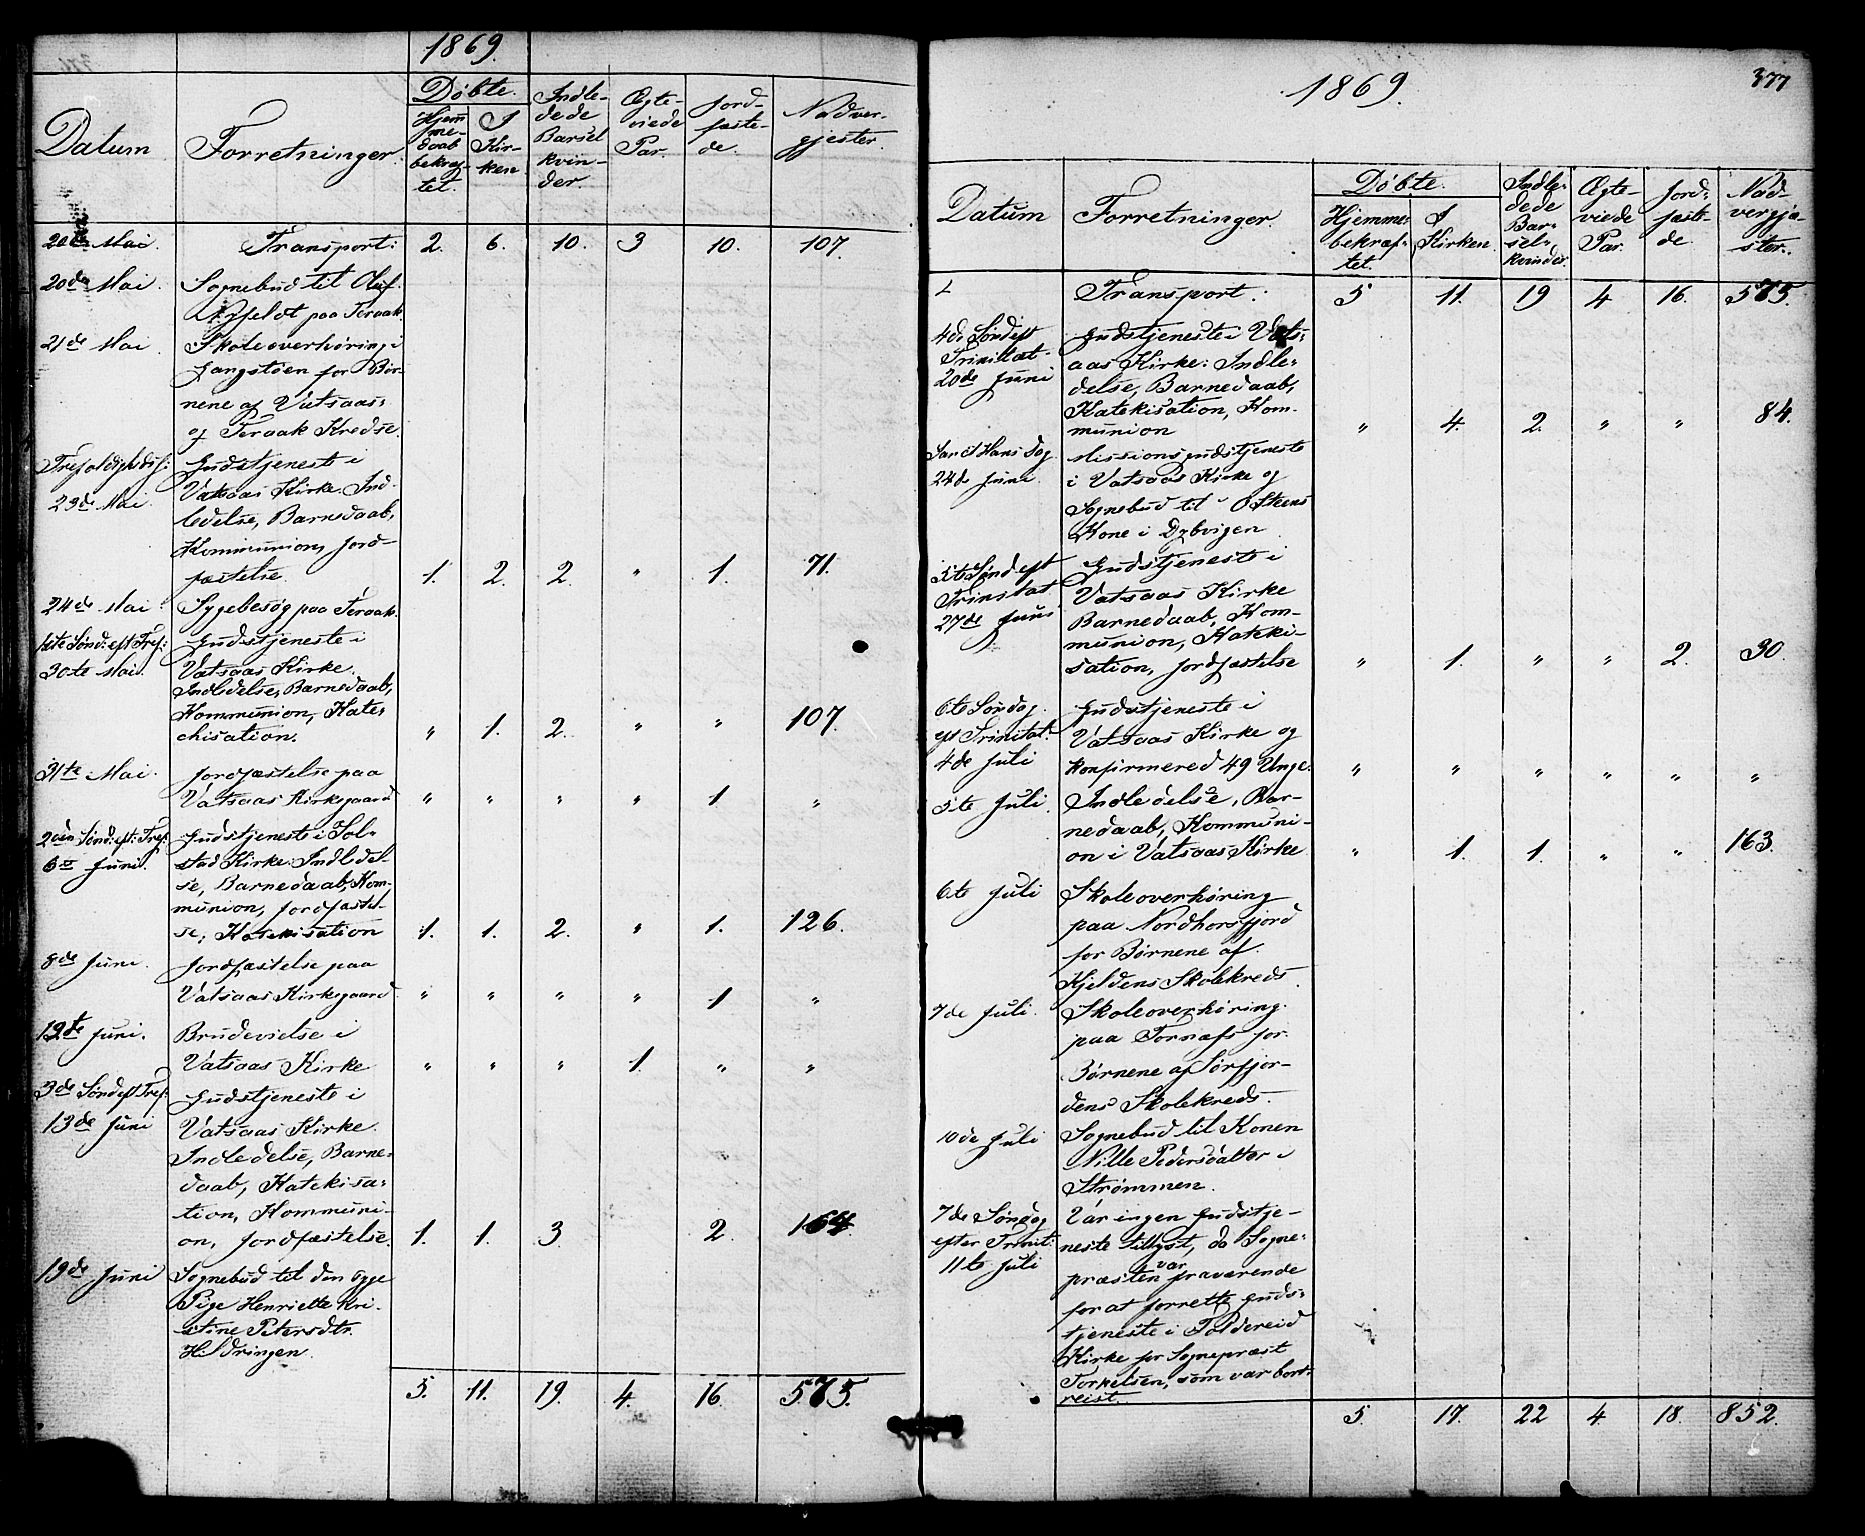 1869.
Datum
Forretninger.
Døbte.
Hjem
me-
daab
bekræf-
tet.
I
Kir-
ken
Indle-
dede
Barsel
kvin-
der.
Ægte-
viede
Par.
Jord-
fæste-
de.
Nadver-
gjester.
20de Mai. Transport: 2. 6. 10. 3 10. 107.
20de Mai. Sognebud til Oluf
paa Teraak.
21de Mai Skoleoverhøring i
Gangstøen for Bør-
nene af Vatsaas:
og Teraak Kredse.
Trefoldighedsf: Gudstjeneste i
23de Mai. Vatsaas Kirke. Ind-
ledelse, Barnedaab,
Kommunion, Jord-
fæstelse. 1. 2. 2. " 1. 71.
24de Mai Sygebesøg paa Teraak.
1ste Sønd: eft Tref: Gudstjeneste i
30te Mai. Vatsaas Kirke.
Indledelse, Barnedaab,
Kommunion, Kate-
chisation. " 1. 2. " " 107.
31te Mai. Jordfæstelse paa
Vatsaas Kirkegaard " " " " 1 "
2den Sønd: eft: Tref: Gudstjeneste i Sol-
6te Juni. stad Kirke: Indledel-
se, Barnedaab, Kom-
munion, Jordfæstel-
se, Katekisation 1. 1. 2. " 1. 126.
8de Juni. Jordfæstelse paa
Vatsaas Kirkegaard " " " " 1 "
12te Juni. Brudevielse i
Vatsaas Kirke " " " 1. " "
3de Sønd eft Tref: Gudstjeneste i
13de Juni Vatsaas Kirke.
Indledelse, Barne-
daab, Katekisa-
tion, Kommuni-
on, Jordfæstelse. 1. 1. 3. 2. 164.
19de Juni Sognebud til den syge
Pige Henriette Kri-
stine Petersdtr.
Hildringen.
5. 11. 19. 4. 16. 575.
1869.
377
Datum
Forretninger.
Døbte.
Hjemme-
bekræf-
tet.
I
Kirken.
Indle-
dede
Bar-
sel-
kvinder.
Ægte-
viede
Par.
Jord-
fæste-
de
Nad-
vergjæ-
ster.
Transport: 5 11. 19 4 16. 575.
4de Sønd eft Gudstjeneste i Vats-
Trinitat. aas Kirke: Indle-
20de Juni delse, Barnedaab,
Katekisation, Kom-
munion " 4. 2. " " 84.
Sanct Hans Dag Missionsgudstjeneste
24de Juni. i Vatsaas Kirke og
Sognebud til O Steens
Kone i Dybvigen
5te Sønd eft Gudstjeneste i
Trinitat Vatsaas Kirke
27de Juni Barnedaab, Kom-
munion, Kateki-
sation, Jordfæstelse " 1. " " 2. 30.
6te Søndag Gudstjeneste i
eft Trinitat: Vatsaas Kirke og
4de Juli konfirmered 49 Unge. " " " " " "
5te Juli. Indledelse, Bar-
nedaab, Kommuni-
on i Vatsaas Kirke " 1. 1. " " 163.
6te Juli Skoleoverhøring
paa Nordhorsfjord
for Børnene af
Kjeldens Skolekreds
7de Juli. Skoleoverhøring
paa Tornæs for
Børnene af Sørfjor-
dens Skolekreds.
10de Juli Sognebud til Konen
Nille Pedersdatter i
Strømmen.
7de Søndag Var ingen Gudstje-
efter Trinit: neste tillyst, da Sogne-
11te Juli præsten var fraværende
for at forrette Guds-
tjeneste i Foldereid
Kirke for Sognepræst
Torkelsen, som var bort-
reist.
5. 17. 22 4 18. 852.